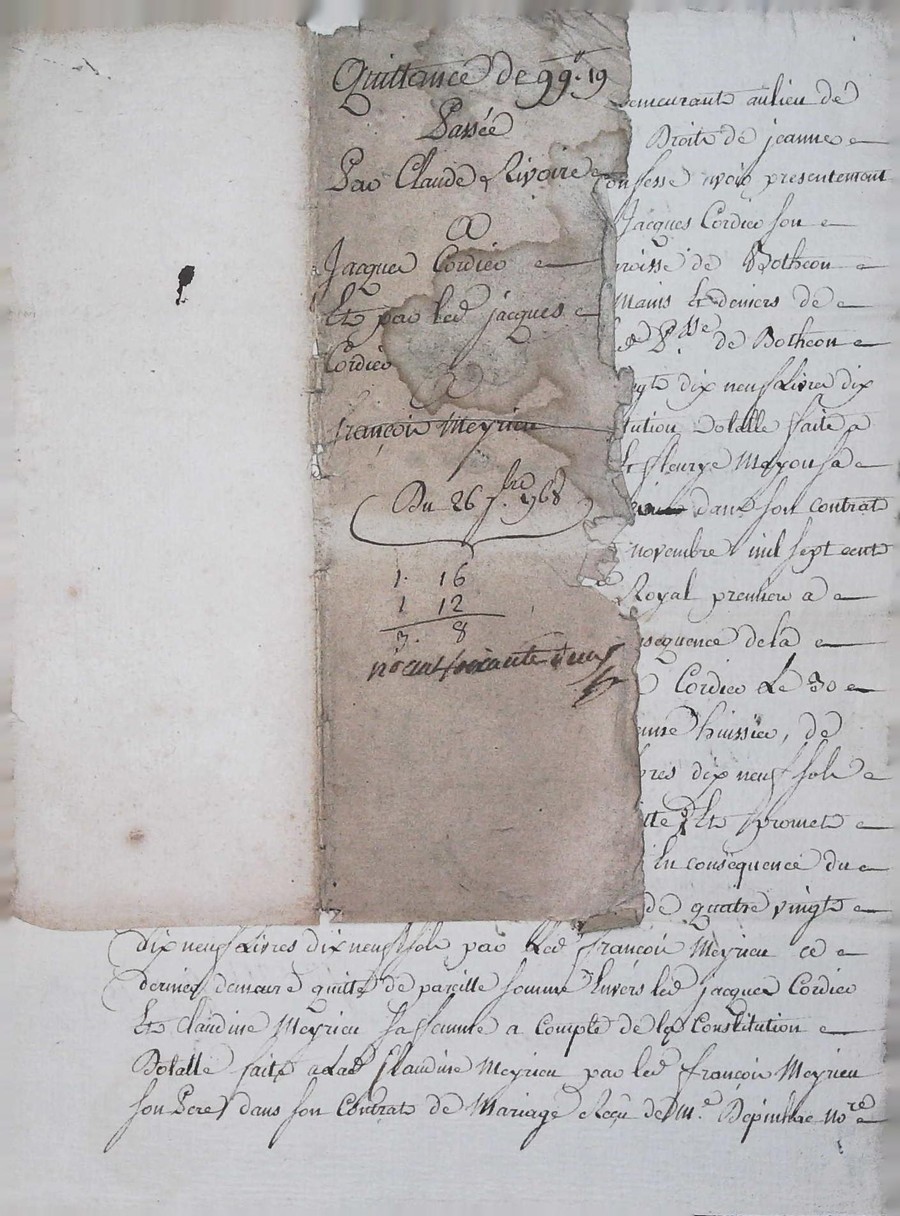 Quittance de 99ᵗᵗ. 19
Passée
Par Claude Rivoire
A
Jacques Cordier
Et par led jacques
Cordier
A
françois Meyrieu
Du 26 7bre 1768
1. 16
1 12
3. 8
no cent soixante deux
demeurante au lieu de
Droits de jeanne
Confesse avoir presentement
Jacques Cordier son
roisse de Botheon
mains Et deniers de
de P.sse de Botheon
ngts dix neuf Livres dix
tution Dotalle faite a
Et fleurye Mayousa
dans son contrat
novembre mil sept cents
Royal premier a
nsequence de la
Cordier Le 30
huissier, de
bres dix neuf sols
itte Et promet
En conséquence du
de quatre vingts
Dix neuf Livres dix neuf sols par Led françois Meyrieu ce
dernier demeure quitte de pareille somme Envers led jacques Cordier
Et Claudine Meyrieu sa femme a Compte de la Constitution
Dotalle faite a lad Claudine Meyrieu par led françois Meyrieu
son Pere dans son Contrat de Mariage Reçu de M.e Depinhac no.re